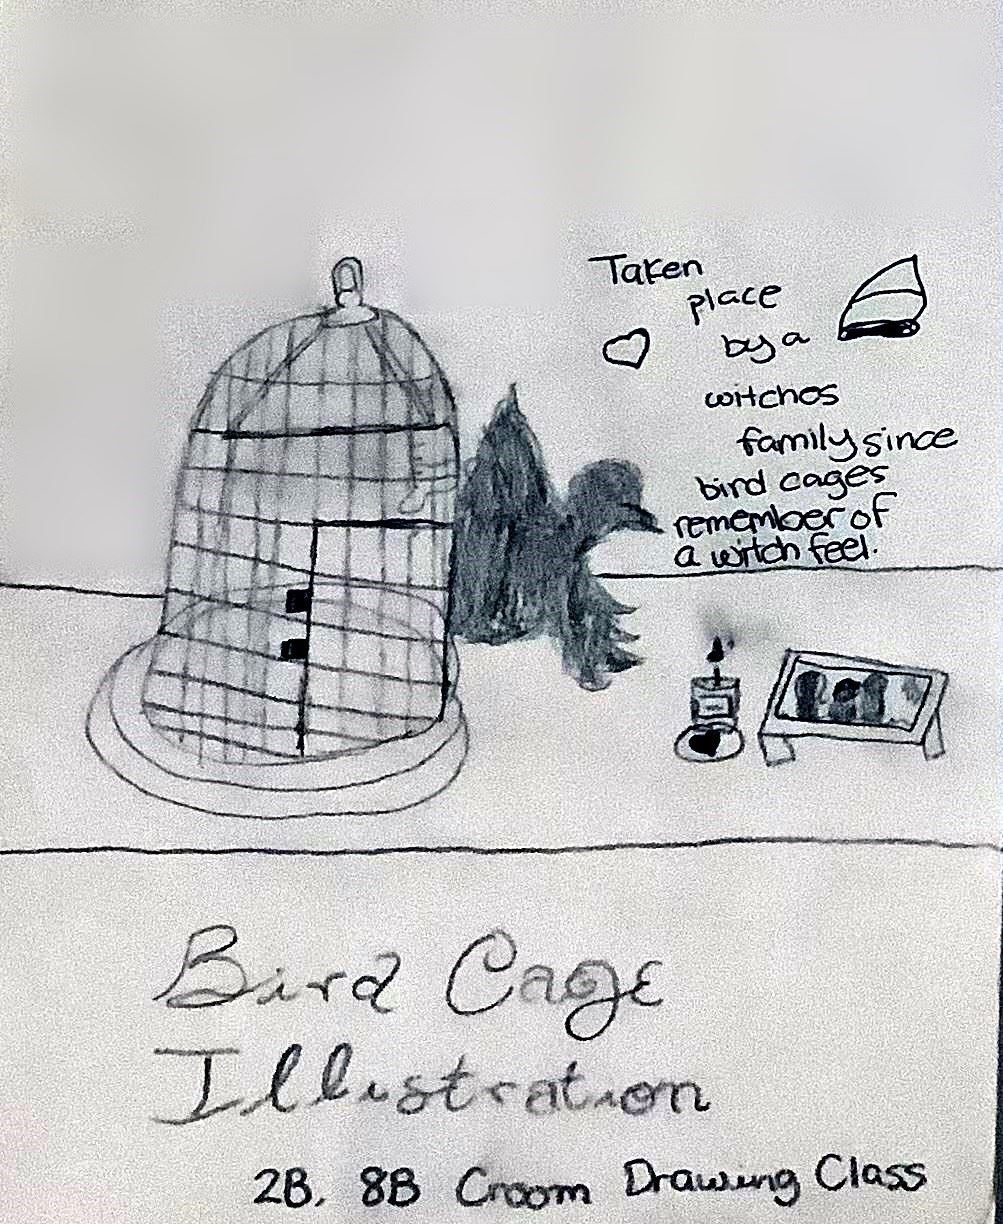 Taken
place
by a
witches
family since
bird cages
remember of
a witch feel.
Bird Cage
Illustration
2B, 8B Croom Drawing Class